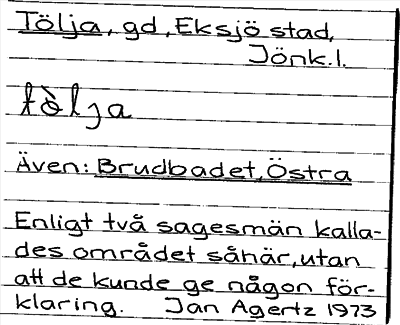 Tölja, gd, Eksjö stad,
Jönk.l.
tòlja
Även: Brudbadet, Östra
Enligt två sagesmän kalla-
des området såhär, utan
att de kunde ge någon för-
klaring. Jan Agertz 1973